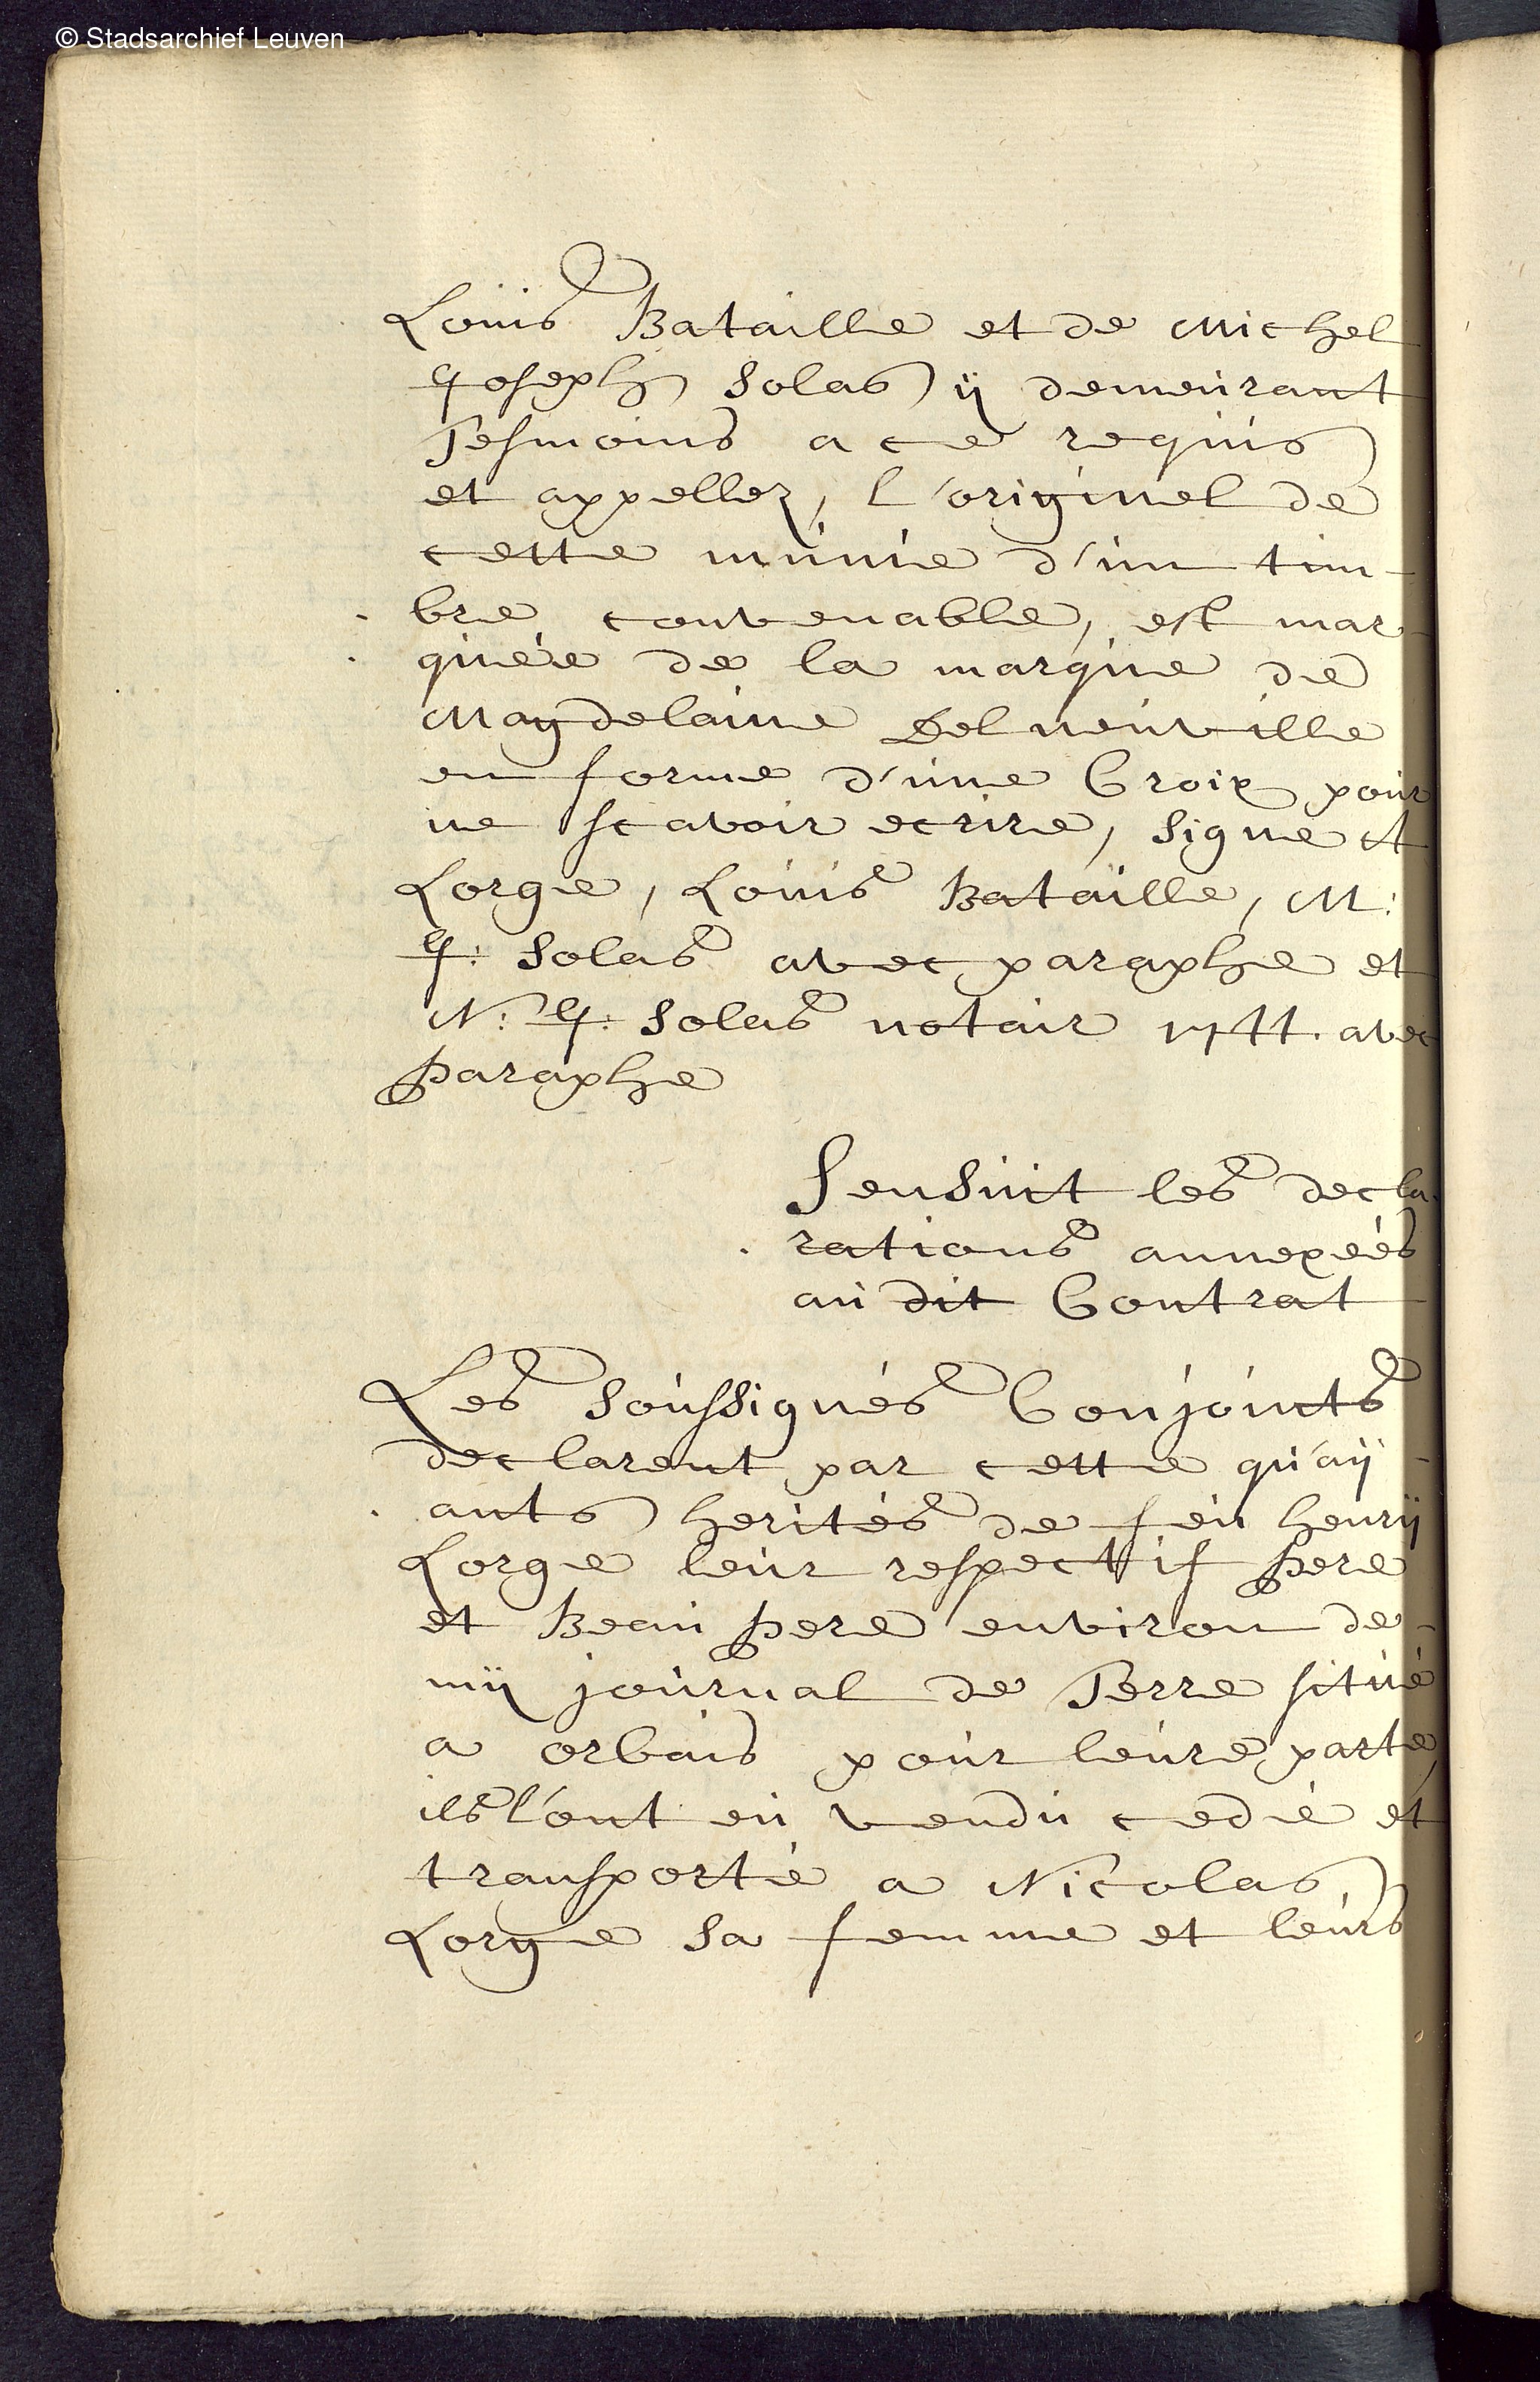 © Stadsarchief Leuven
Loüis Bataille et de Michel
Joseph Solas ÿ demeurant
Tesmoins a ce requis
et appellez, l'originel de
cette munie d'un tim-
bre convenable, est mar-
quéé de la marque de
Magdelaine Delneuville
en forme d'une Croix pour
ne scavoir ecrire, signe A
Lorge, Louis Bataille, M:
J: Solas avec paraphe et
N: J: Solas notair avec
paraphe
Sensuit les decla-
rations annexéés
au dit Contrat
Les soussignés Conjoints
declarent par cette qu'aÿ-
ants herités de feu henrÿ
Lorge leur respectif pere
et Beau pere environ de-
mÿ journal de Terre situé
a orbais pour leure parte,
ils l'ont eu vendu cedé et
transporté a Nicolas
Lorge sa femme et leurs